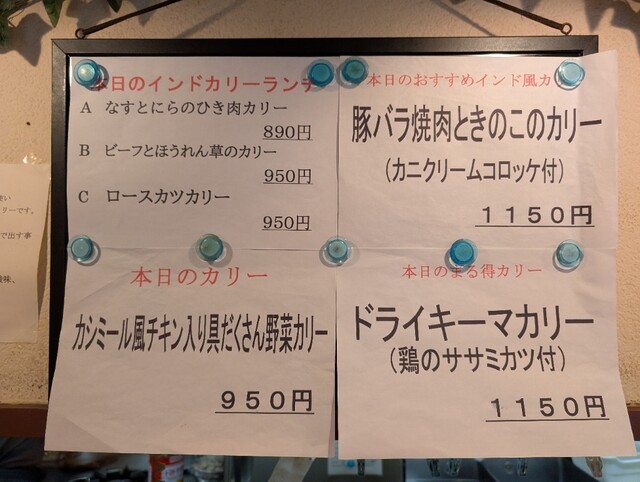 本日のインドカリーランチ
A なすとにらのひき肉カリー
890円
B ビーフとほうれん草のカリー
950円
C ロースカツカリー
950円
本日のおすすめインド風カ
豚バラ焼肉ときのこのカリー
(カニクリームコロッケ付)
1150円
本日のカリー
カシミール風チキン入り具だくさん野菜カリー
950円
本日のまる得カリー
ドライキーマカリー
(鶏のササミカツ付)
1150円
リーです。
で出す事